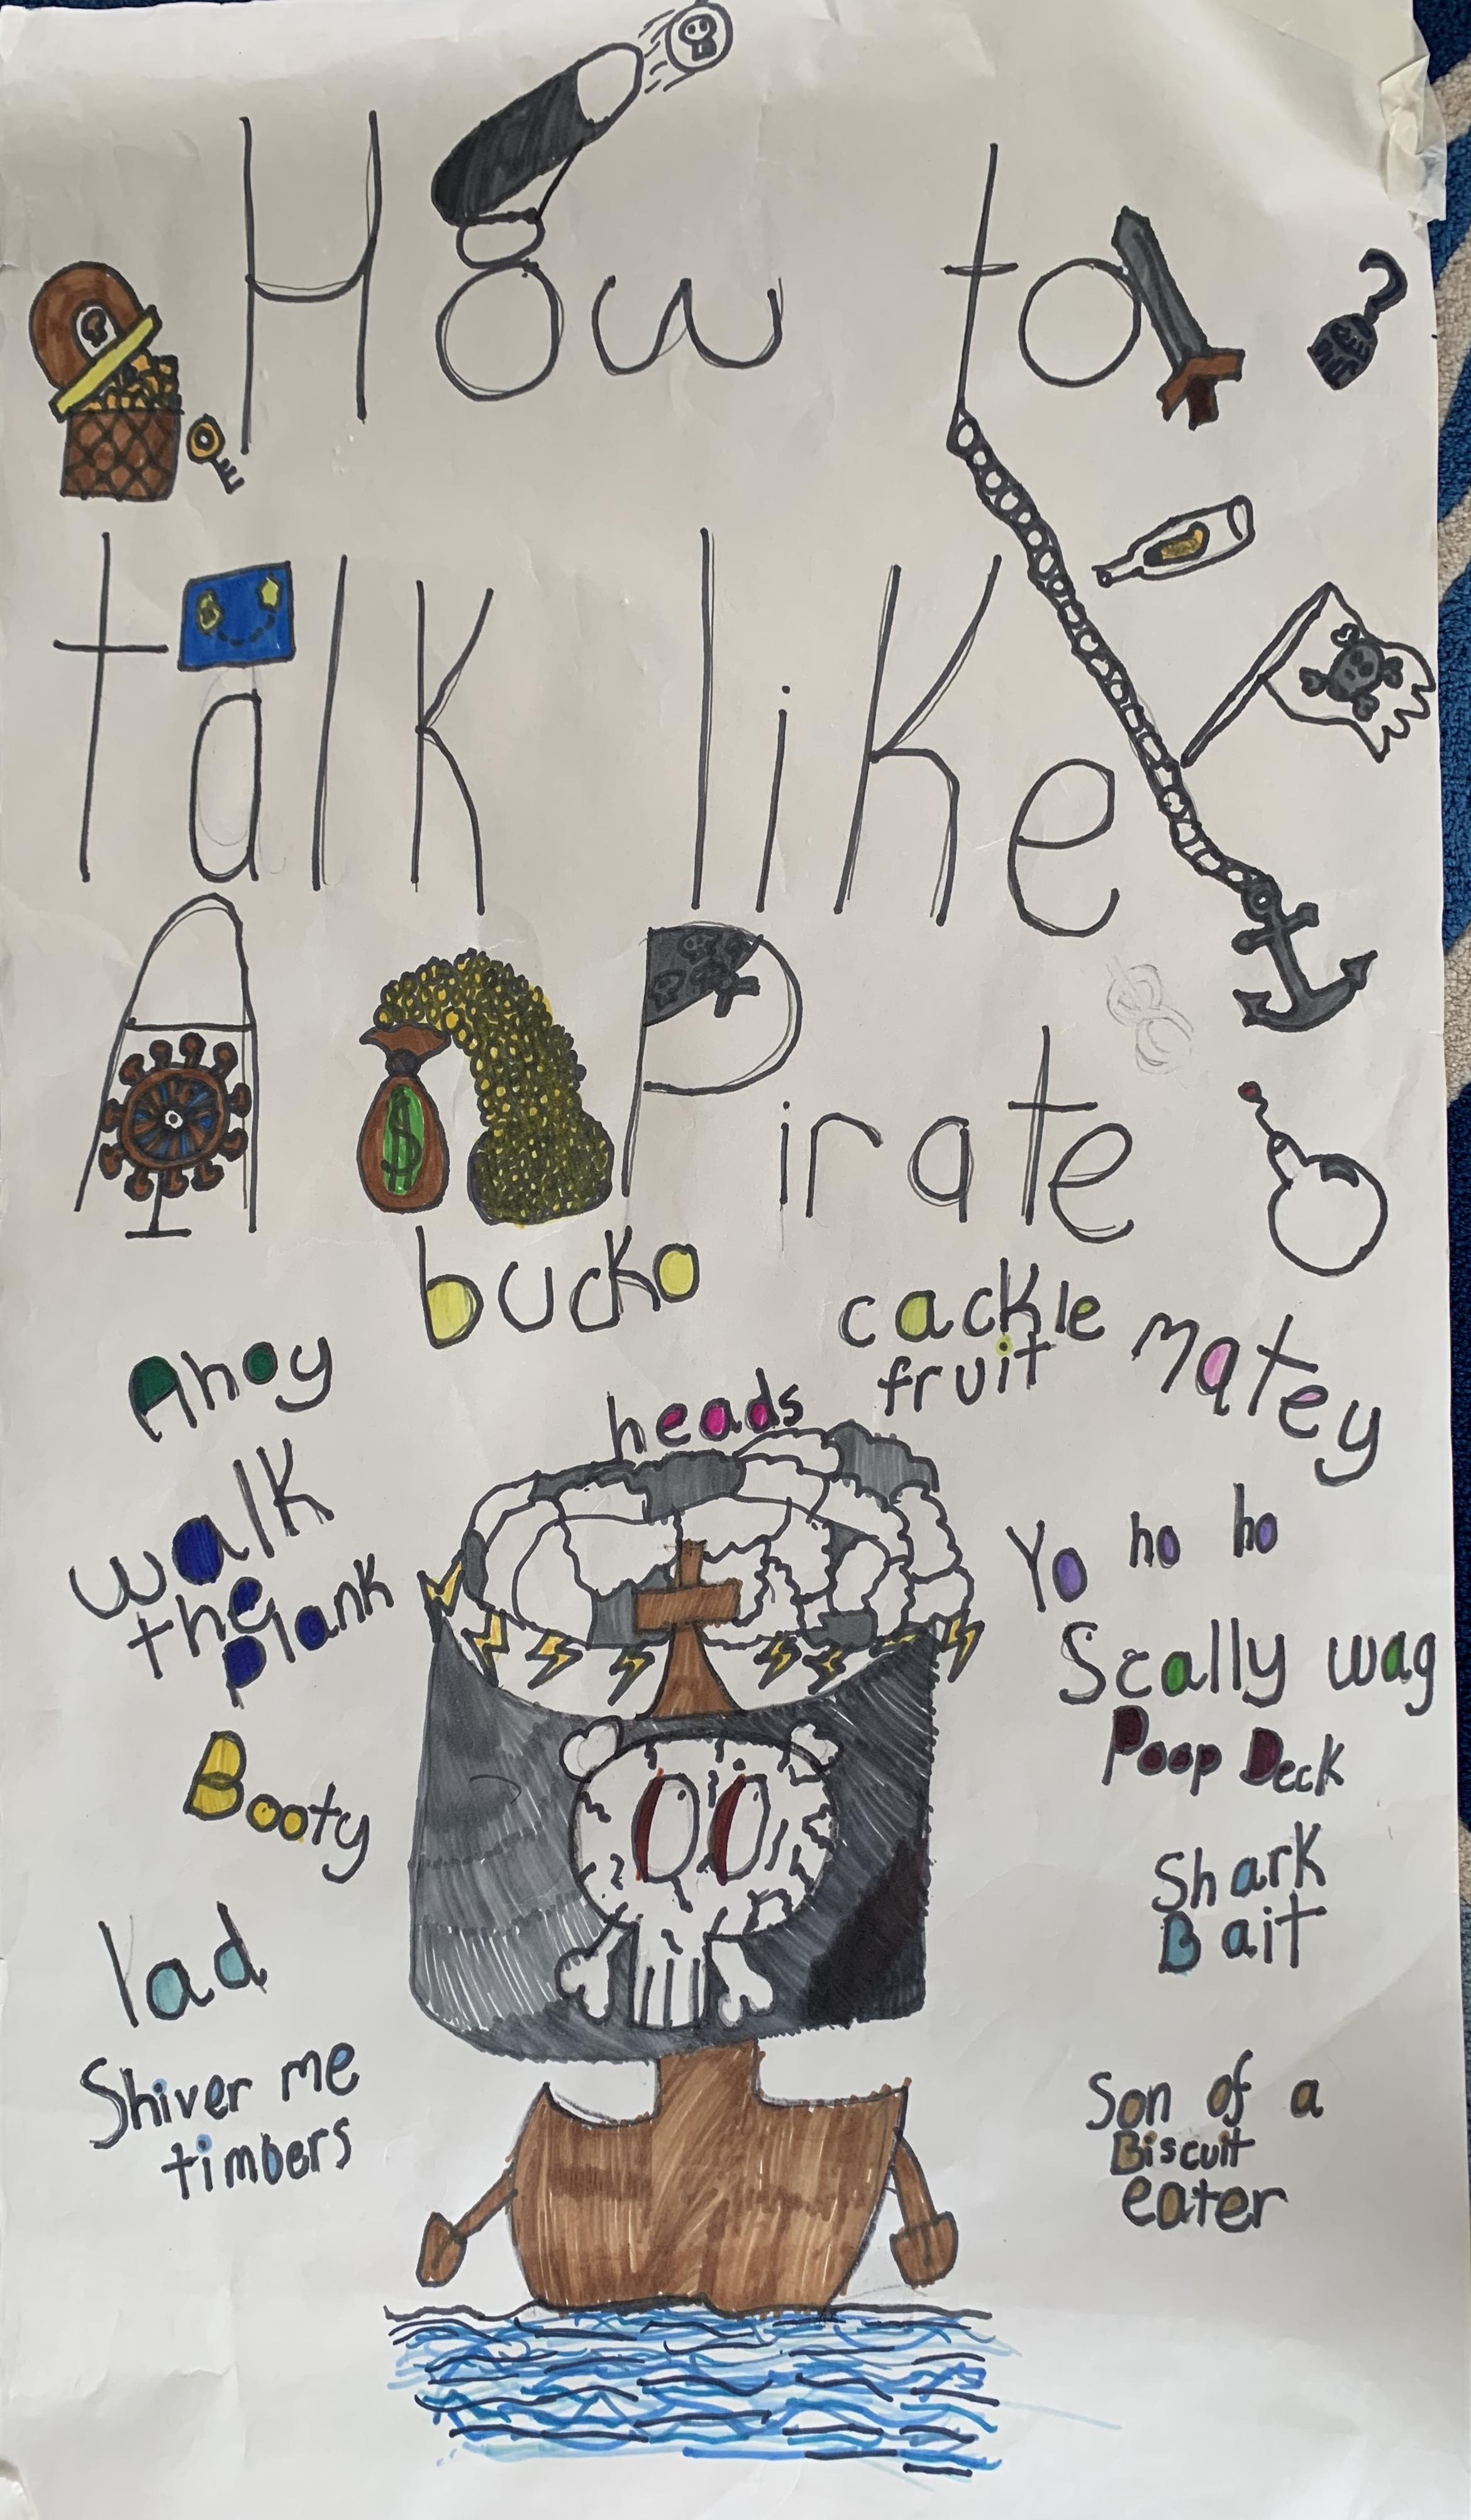 How to
talk like
A Pirate
bucko
cackle
fruit
Matey
Ahoy
heads
walk
the
plank
Yo ho ho
Scally wag
Booty
Poop Deck
Shark
Bait
lad
Shiver me
timbers
Son of a
Biscuit
eater
$